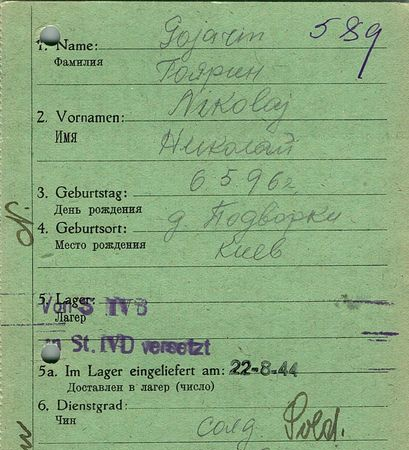 1. Name: Gojarin 589
Фамилия Гоярин
2. Vornamen: Nikolaj
Имя Николай
3. Geburtstag: 6.5.96г.
День рождения
4. Geburtsort: д. Подворки
Место рождения Киев
5. Lager: Von S IVB
Лагер
St. IVD versetzt
5a. Im Lager eingeliefert am: 22-8-44
Доставлен в лагер (число)
6. Dienstgrad:
Чин солд. Sold.